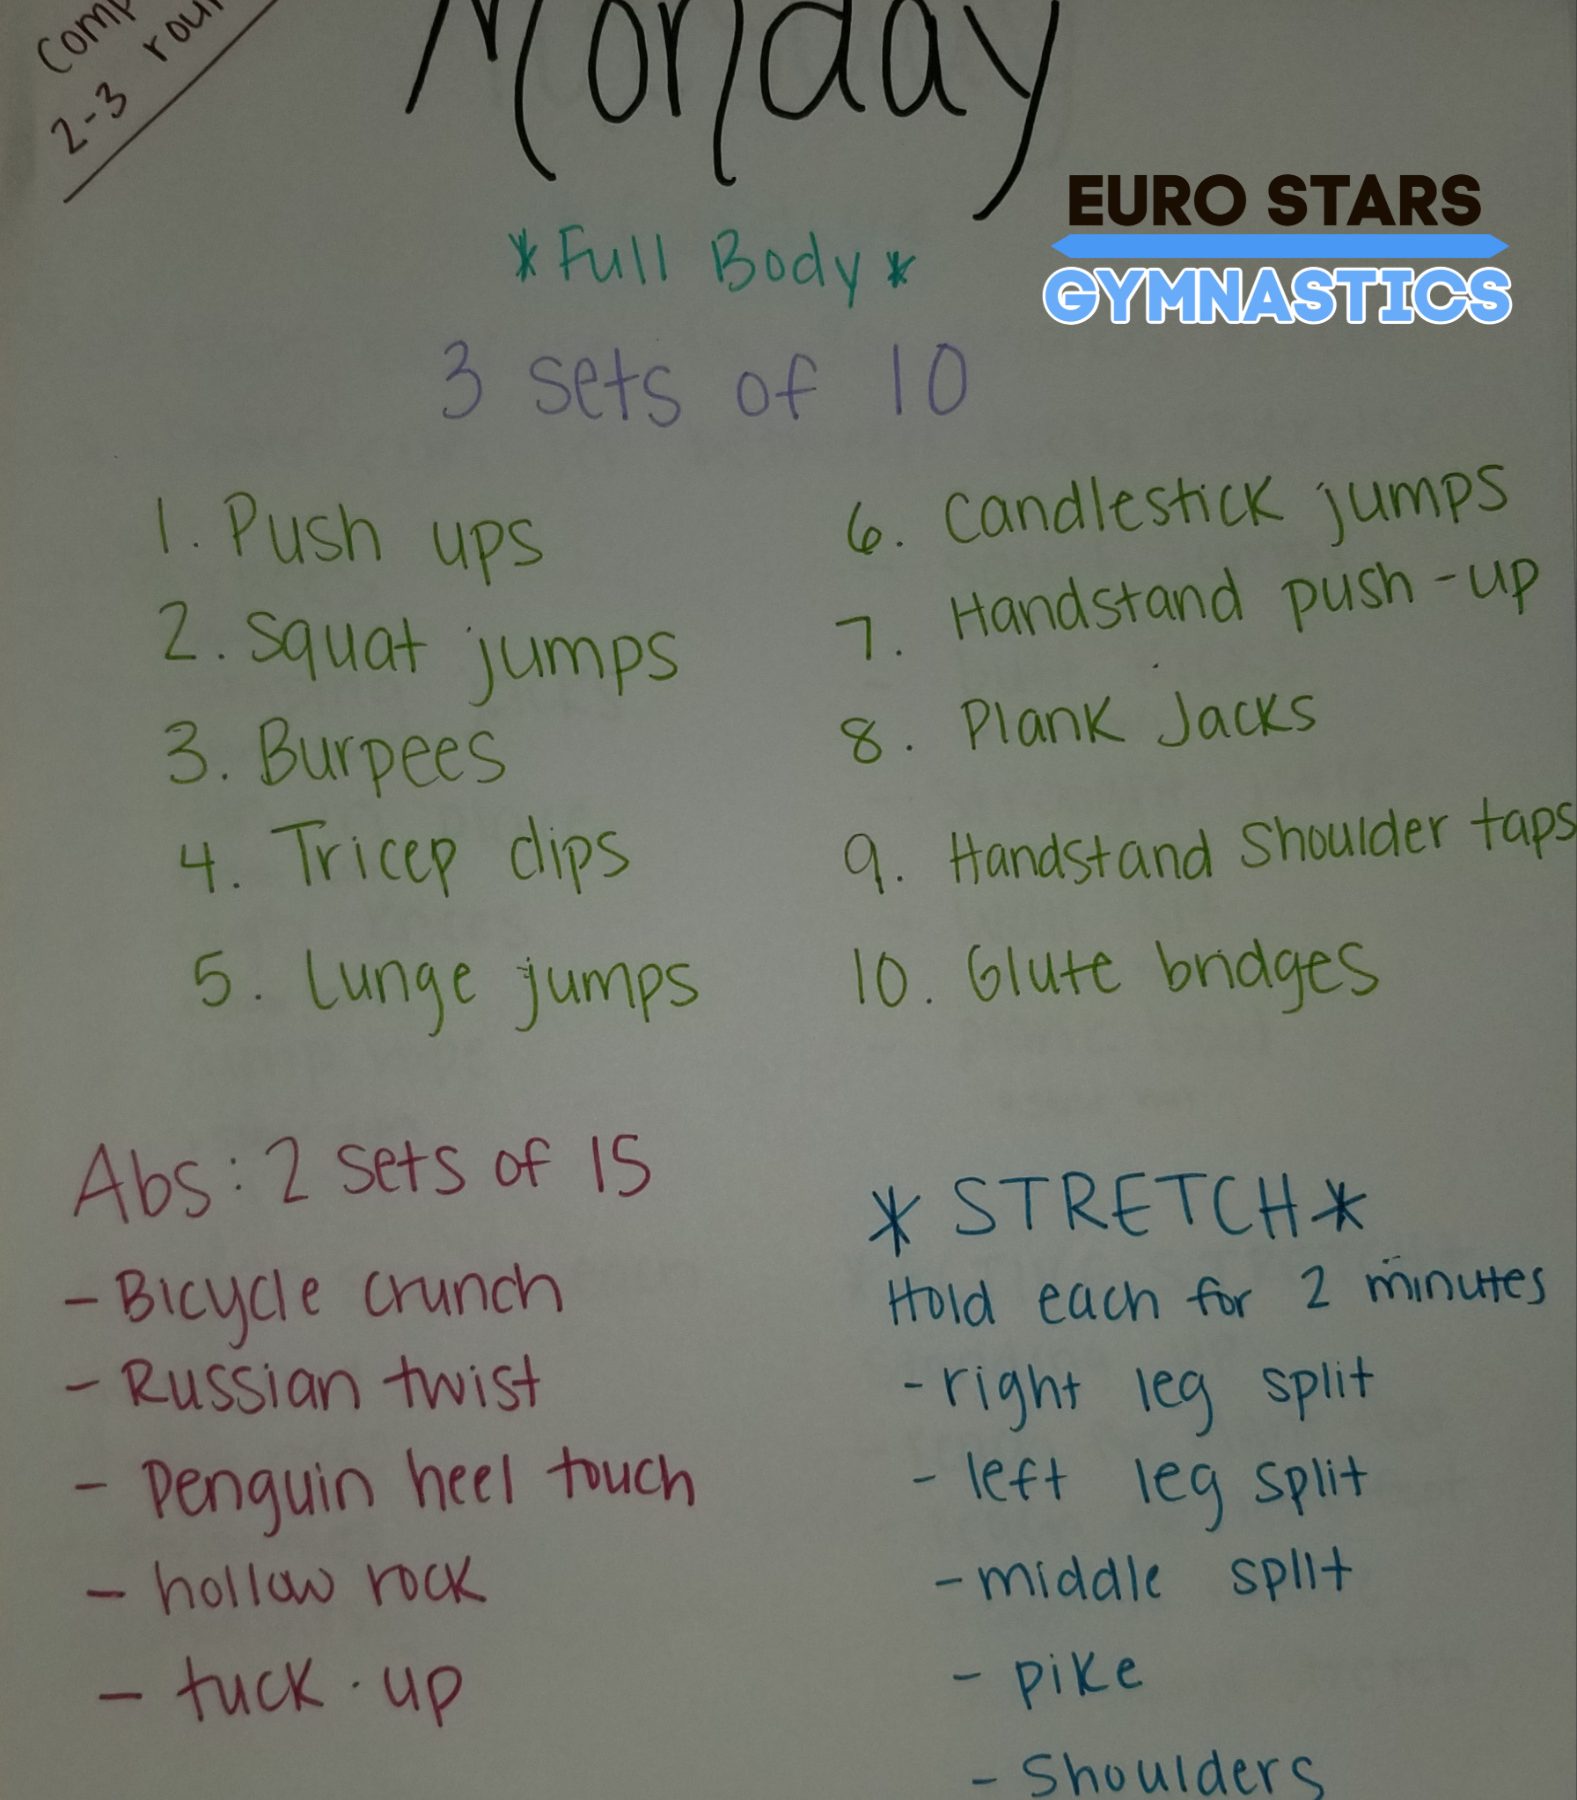 2-3
Monday
EURO STARS
GYMNASTICS
*Full Body*
3 sets of 10
1. Push ups
2. Squat jumps
3. Burpees
4. Tricep dips
5. Lunge jumps
6. Candlestick jumps
7. Handstand push-up
8. Plank Jacks
9. Handstand Shoulder taps
10. Glute bridges
Abs: 2 sets of 15
- Bicycle crunch
- Russian twist
- Penguin heel touch
- hollow rock
- tuck · up
*STRETCH*
Hold each for 2 minutes
- right leg split
- left leg split
- middle split
- pike
- Shoulders